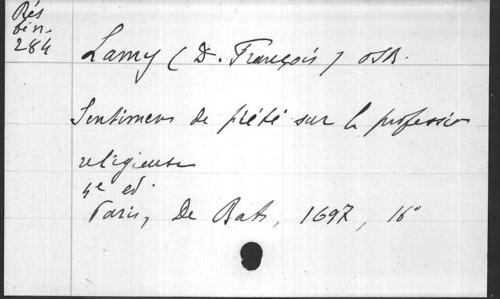 Rés
bén.
284
Lamy (D. François) OSB.
Sentimens de piété sur la profession
religieuse
4e ed.
Paris, De Bats, 1697, 16°